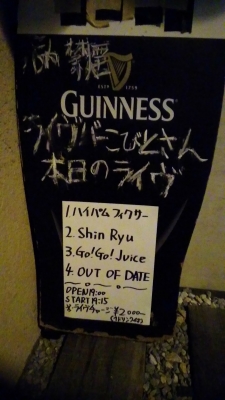 ESTD 1759
GUINNESS
ライヴバーこびとさん
本日のライヴ
1.ハイパムフィクサー
2.Shin Ryu
3.Go!Go! Juice
4.OUT OF DATE
OPEN 19:00
START 19:15
ライヴチャージ ¥2000-